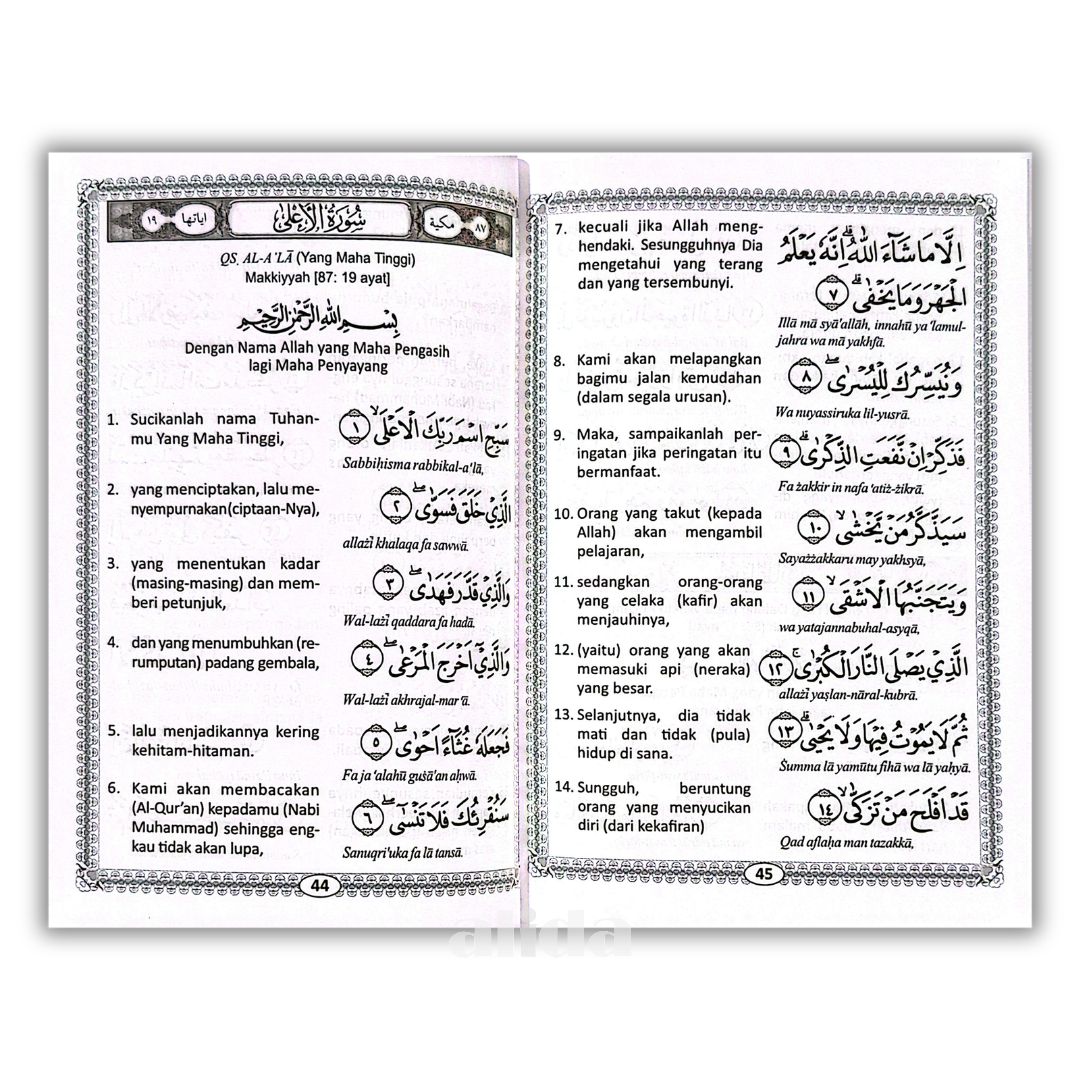 ٨٧ مكية سُوْرَةُ الْأَعْلٰى اياتها ١٩
QS. AL-A'LĀ (Yang Maha Tinggi)
Makkiyyah [87: 19 ayat]
بِسْمِ اللّٰهِ الرَّحْمٰنِ الرَّحِيْمِ
Dengan Nama Allah yang Maha Pengasih
lagi Maha Penyayang
1. Sucikanlah nama Tuhan-
mu Yang Maha Tinggi,
سَبِّحِ اسْمَ رَبِّكَ الْاَعْلَىۙ ١
Sabbiḥisma rabbikal-a'lā,
2. yang menciptakan, lalu me-
nyempurnakan (ciptaan-Nya),
الَّذِيْ خَلَقَ فَسَوّٰىۖ ٢
allażī khalaqa fa sawwā.
3. yang menentukan kadar
(masing-masing) dan mem-
beri petunjuk,
وَالَّذِيْ قَدَّرَ فَهَدٰىۖ ٣
Wal-lażī qaddara fa hadā.
4. dan yang menumbuhkan (re-
rumputan) padang gembala,
وَالَّذِيْٓ اَخْرَجَ الْمَرْعٰىۖ ٤
Wal-lażī akhrajal-mar'ā.
5. lalu menjadikannya kering
kehitam-hitaman.
فَجَعَلَهٗ غُثَاۤءً اَحْوٰىۖ ٥
Fa ja 'alahū guśā'an aḥwā.
6. Kami akan membacakan
(Al-Qur'an) kepadamu (Nabi
Muhammad) sehingga eng-
kau tidak akan lupa,
سَنُقْرِئُكَ فَلَا تَنْسٰىٓۖ ٦
Sanuqri'uka fa lā tansā.
44
7. kecuali jika Allah meng-
hendaki. Sesungguhnya Dia
mengetahui yang terang
dan yang tersembunyi.
اِلَّا مَا شَاۤءَ اللّٰهُ ۗاِنَّهٗ يَعْلَمُ
الْجَهْرَ وَمَا يَخْفٰىۗ ٧
Illā mā syā'allāh, innahū ya 'lamul-
jahra wa mā yakhfā.
8. Kami akan melapangkan
bagimu jalan kemudahan
(dalam segala urusan).
وَنُيَسِّرُكَ لِلْيُسْرٰىۖ ٨
Wa nuyassiruka lil-yusrā.
9. Maka, sampaikanlah per-
ingatan jika peringatan itu
bermanfaat.
فَذَكِّرْ اِنْ نَّفَعَتِ الذِّكْرٰىۗ ٩
Fa żakkir in nafa 'atiż-żikrā.
10. Orang yang takut (kepada
Allah) akan mengambil
pelajaran,
سَيَذَّكَّرُ مَنْ يَّخْشٰىۙ ١٠
Sayażżakkaru may yakhsyā,
11. sedangkan orang-orang
yang celaka (kafir) akan
menjauhinya,
وَيَتَجَنَّبُهَا الْاَشْقَىۙ ١١
wa yatajannabuhal-asyqā,
12. (yaitu) orang yang akan
memasuki api (neraka)
yang besar.
الَّذِيْ يَصْلَى النَّارَ الْكُبْرٰىۚ ١٢
allażī yaṣlan-nāral-kubrā.
13. Selanjutnya, dia tidak
mati dan tidak (pula)
hidup di sana.
ثُمَّ لَا يَمُوْتُ فِيْهَا وَلَا يَحْيٰىۗ ١٣
Śumma lā yamūtu fīhā wa lā yaḥyā.
14. Sungguh, beruntung
orang yang menyucikan
diri (dari kekafiran)
قَدْ اَفْلَحَ مَنْ تَزَكّٰىۙ ١٤
Qad aflaḥa man tazakkā,
45
alida